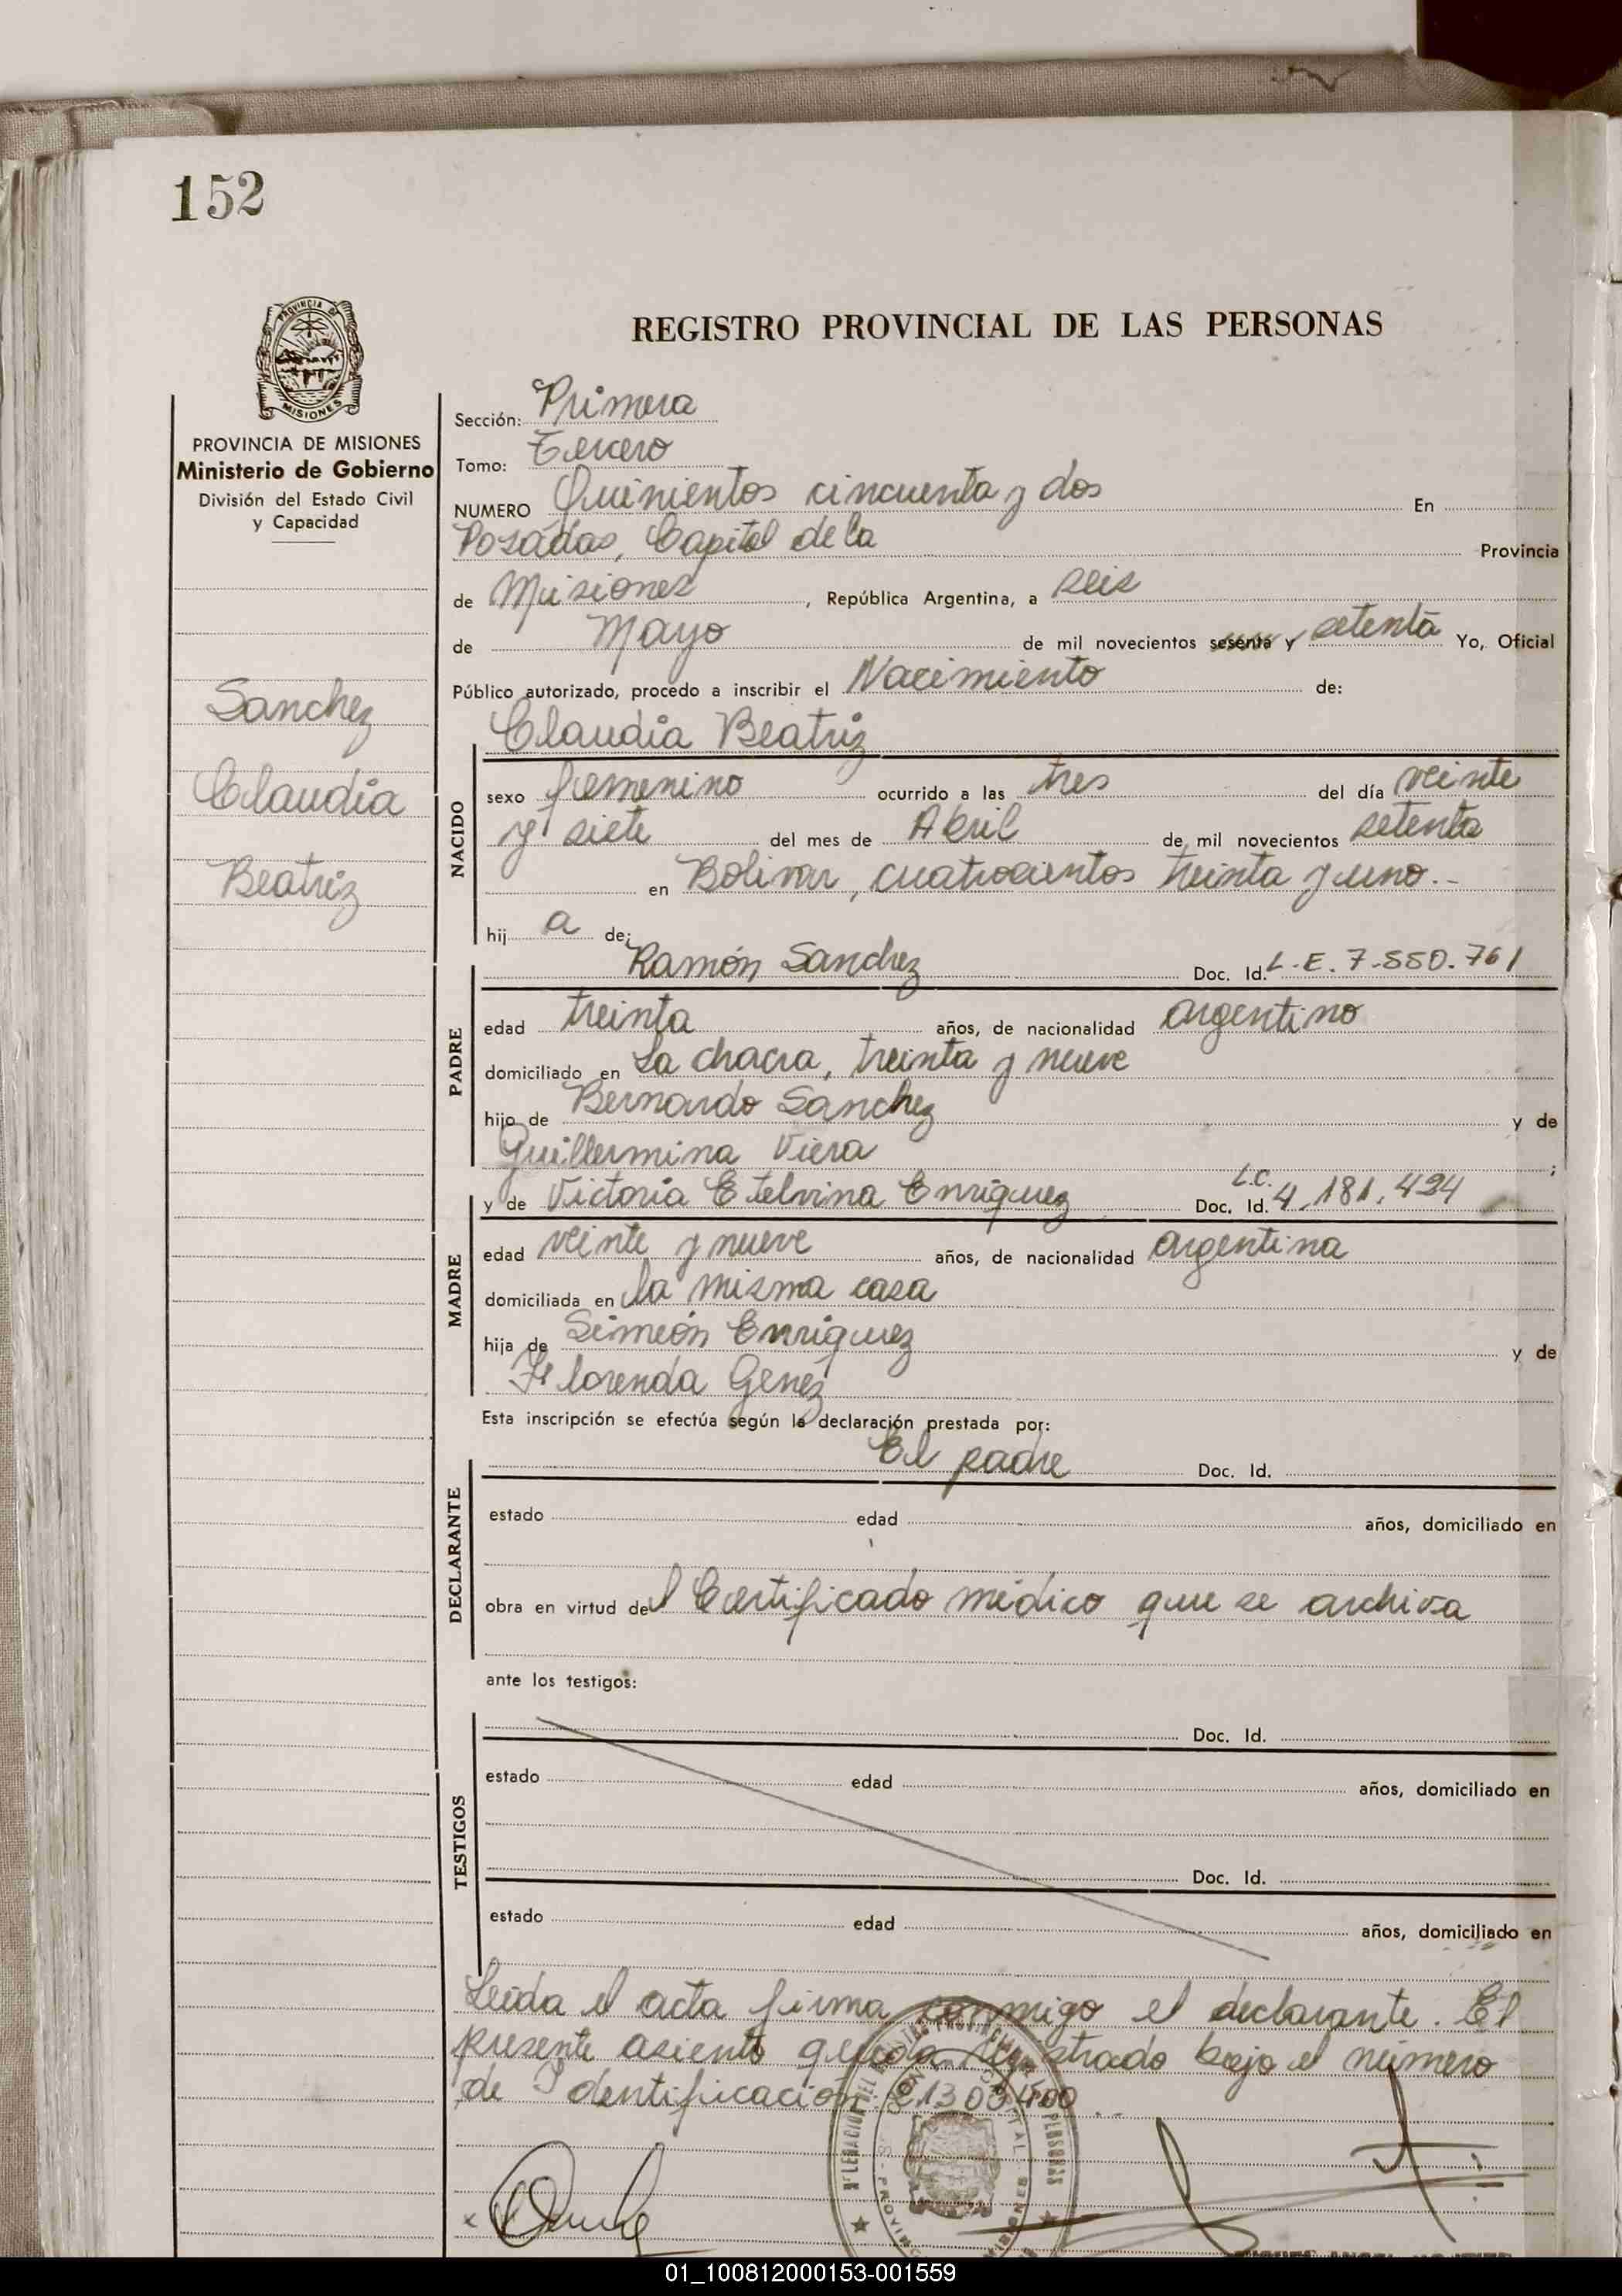 152
PROVINCIA DE
MISIONES
PROVINCIA DE MISIONES
Ministerio de Gobierno
División del Estado Civil
y Capacidad
Sanchez
Claudia
Beatriz
REGISTRO PROVINCIAL DE LAS PERSONAS
Sección: Primera
Tomo: Tercero
NUMERO Quinientos cincuenta y dos En
Posadas, Capital de la Provincia
de Misiones, República Argentina, a seis
de Mayo de mil novecientos sesenta y setenta Yo, Oficial
Público autorizado, procedo a inscribir el Nacimiento de:
Claudia Beatriz
NACIDO
sexo femenino ocurrido a las tres del día veinte
y siete del mes de Abril de mil novecientos setenta
en Bolivar, cuatrocientos treinta y uno.-
hij a de:
Ramón Sanchez Doc. Id. L.E. 7.550.761
PADRE
edad treinta años, de nacionalidad argentino
domiciliado en La chacra, treinta y nueve
hijo de Bernardo Sanchez y de
Guillermina Viera ;
y de Victoria Etelvina Enriquez Doc. Id. L.C. 4.181.494
MADRE
edad veinte y nueve años, de nacionalidad argentina
domiciliada en la misma casa
hija de Simeón Enriquez y de
Florenda Genez
Esta inscripción se efectúa según la declaración prestada por:
El padre Doc. Id.
DECLARANTE
estado edad años, domiciliado en
obra en virtud del Certificado médico que se archiva
ante los testigos:
Doc. Id.
TESTIGOS
estado edad años, domiciliado en
Doc. Id.
estado edad años, domiciliado en
Leída el acta firma conmigo el declarante. El
presente asiento queda registrado bajo el número
de Identificación
01_100812000153-001559